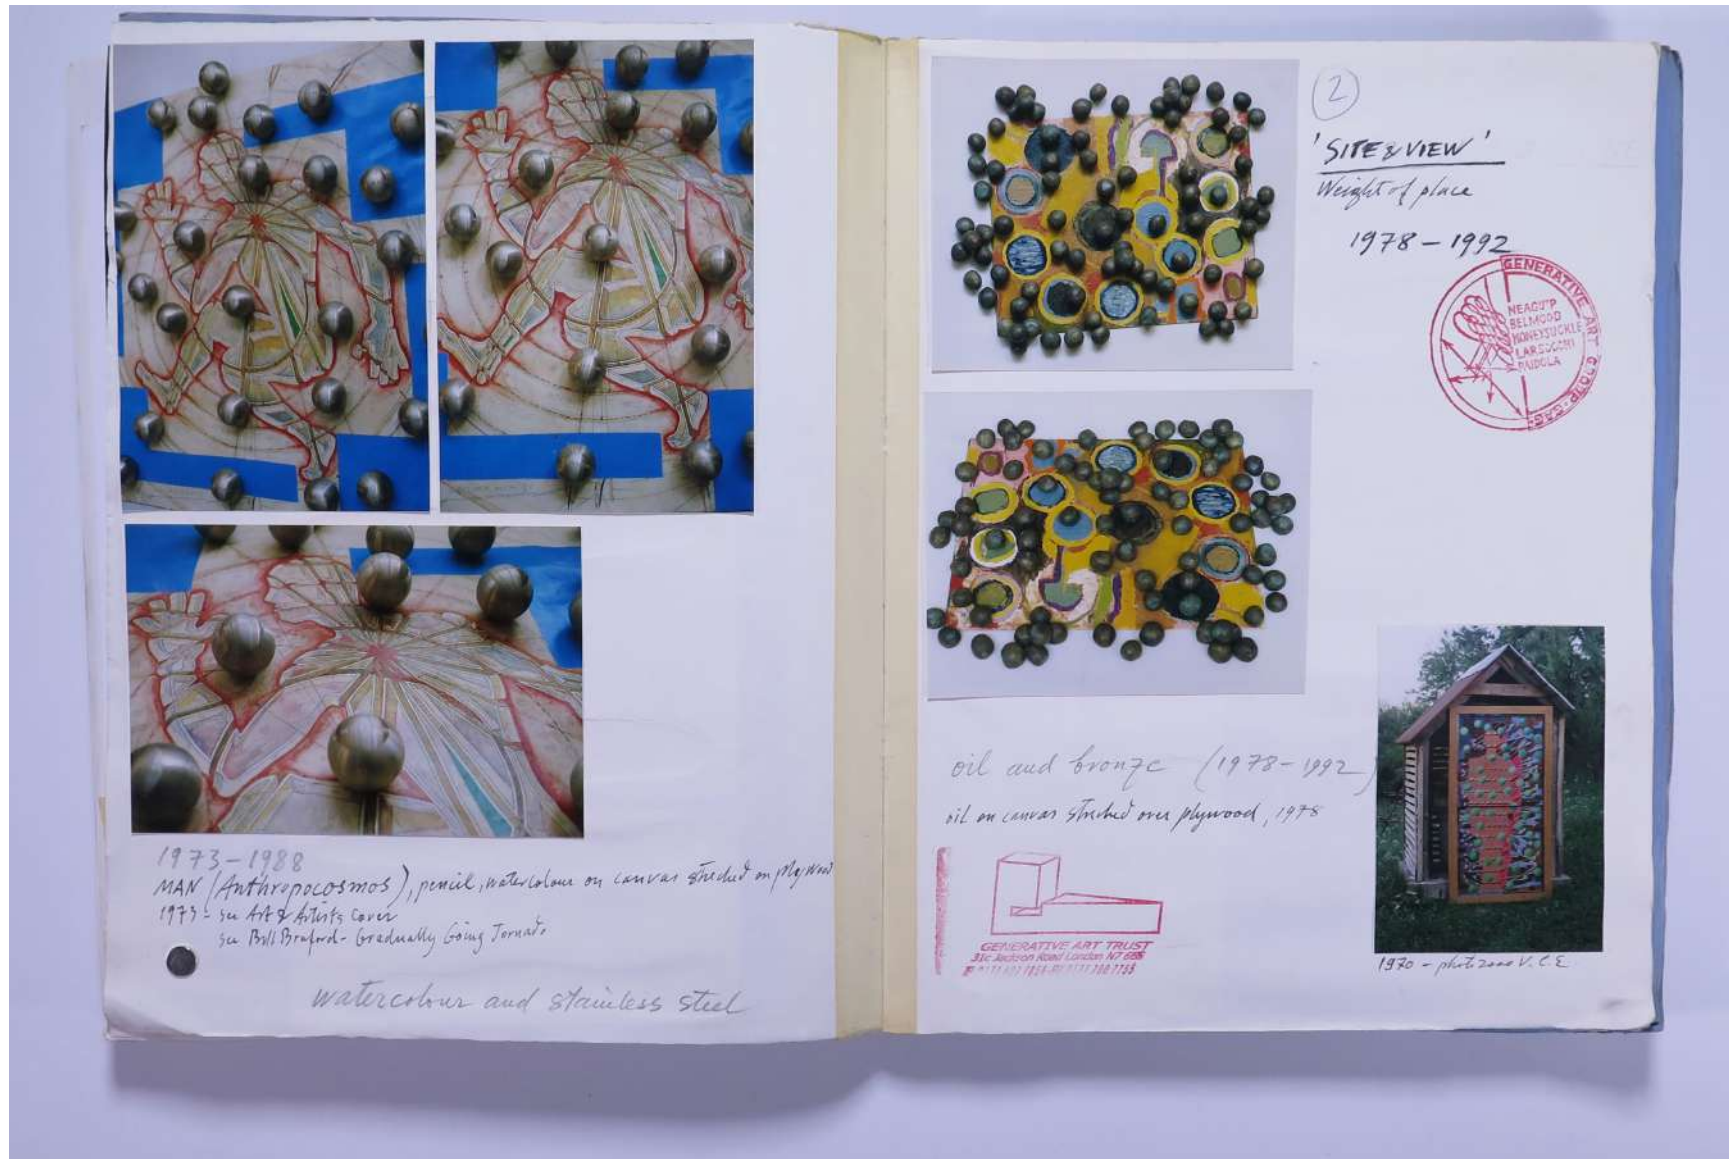 1973-1988
MAN (Anthropocosmos), pencil, watercolour on canvas streched on plywood
1973 - see Art & Artists Cover
see Bill Braford - Gradually Going Tornado
watercolour and stainless steel
2
'SITE & VIEW'
Weight of place
1978-1992
GENERATIVE ART GROUP - GAG
NEAGU P
BELMOOD
HONEYSUCKLE
LARSOCCHI
PAIDOLA
oil and bronze (1978-1992)
oil on canvas streched over plywood, 1978
GENERATIVE ART TRUST
31c Jackson Road London N7 6ES
1970 - photo 2000 V.C.E